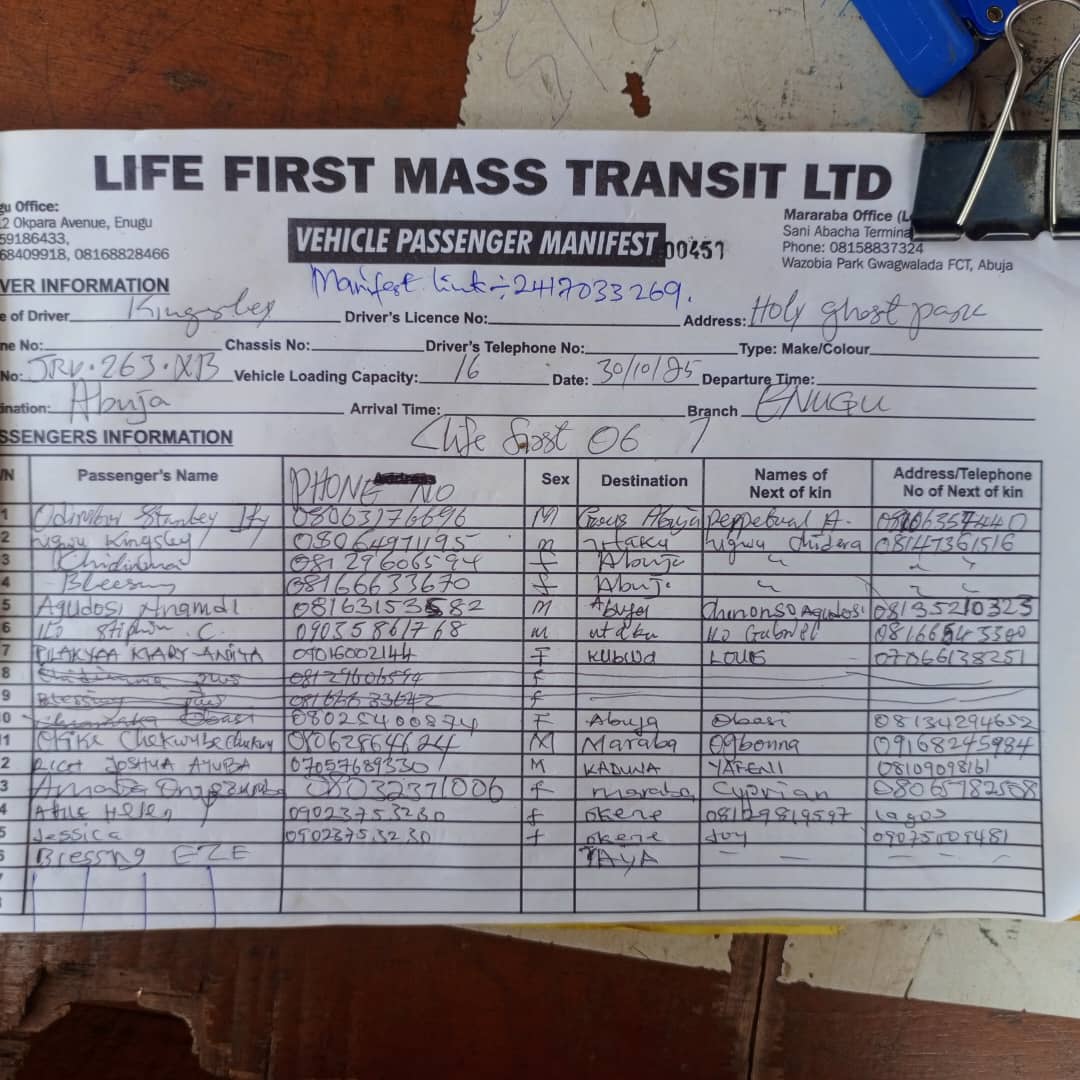 LIFE FIRST MASS TRANSIT LTD
gu Office:
2 Okpara Avenue, Enugu
59186433,
68409918, 08168828466
VEHICLE PASSENGER MANIFEST 00451
Mararaba Office (L
Sani Abacha Termina
Phone: 08158837324
Wazobia Park Gwagwalada FCT, Abuja
VER INFORMATION
Manifest link ÷ 2417033269.
e of Driver Kingsley Driver's Licence No: Address: Holy ghost park
ne No: Chassis No: Driver's Telephone No: Type: Make/Colour
No: JRV·263·XB Vehicle Loading Capacity: 16 Date: 30/10/25 Departure Time:
ination: Abuja Arrival Time: Branch ENUGU
SSENGERS INFORMATION
<life first 06 7
/N Passenger's Name PHONE NO Sex Destination Names of Next of kin Address/Telephone No of Next of kin
1 Stanley 08063176696 M Abuja perpetual A.
2 Ugwu Kingsley 08064971195 m utako Ugwu Chidera 08147361516
3 Chidinma 08129606594 f Abuja " " "
4 Blessing 08166633670 f Abuj. " " "
5 Agudosi Anamdi 08163153582 m Abuja Chinonso Agudosi 08135210323
6 Ilo Stiphin C. 09035861768 m utako Ilo Gabriel
7 MARY-ANITA 09016002144 F KUBWA LOUE 07066138251
8 Chidinma 08129606594 f
9 Blessing f
0 Obasi 08025400874 F Abuja Obasi 08134294652
11 Chekwube 08062864624 M Maraba Ogbonna 09168245984
2 JOSHUA AYUBA 07057689330 M KADUNA YAFENI 08109098161
3 Amaba 08032371006 f maraba Cyprian 08065782508
4 Helen 09023753230 f okene 08129819597 lagos
5 Jessica 09023753230 f okene Joy
6 Blessing EZE YAYA — — —